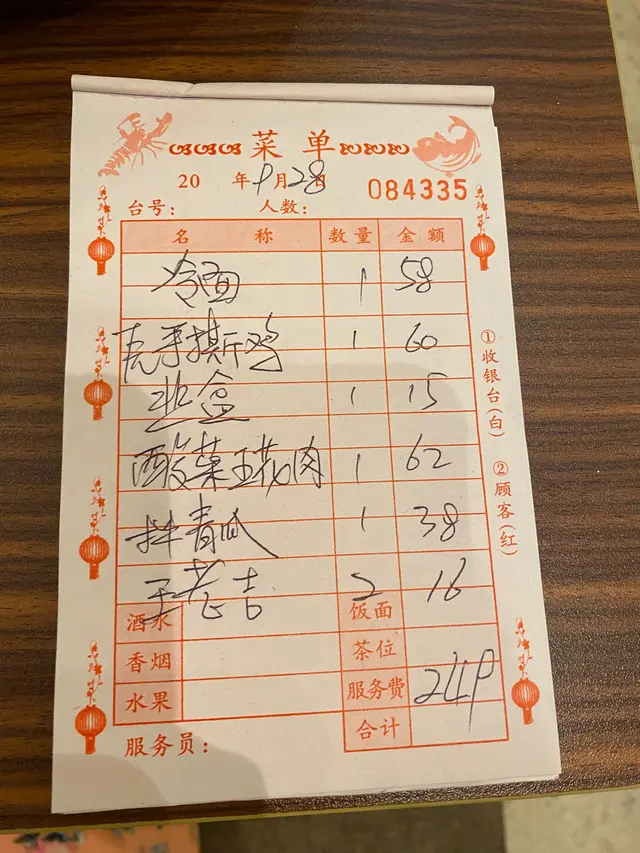 菜单
20 年9月28日
084335
台号： 人数：
名称 数量 金额
冷面 1 58
手撕鸡 1 60
韭盒 1 15
酸菜五花肉 1 62
拌青瓜 1 38
王老吉 2 16
酒水 饭面
香烟 茶位
水果 服务费 249
合计
服务员：
①收银台(白) ②顾客(红)